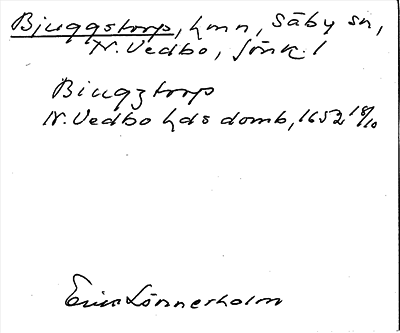 Bjuggstorp, hmn, Säby sn,
N. Vedbo, Jönk. l
Biugztorp
N. Vedbo hds domb, 1652 18/10
Eric Lönnerholm